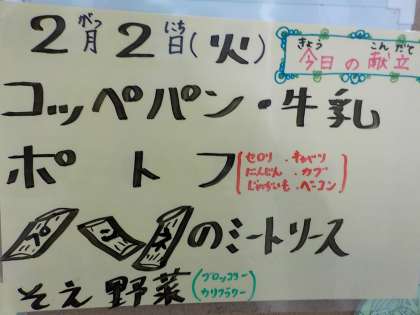 2月2日(火)
がつ にち
きょう こんだて
今日の献立
コッペパン・牛乳
ポトフ
セロリ・キャベツ
にんじん・カブ
じゃがいも・ベーコン
ペンネのミートソース
そえ野菜
ブロッコリー
カリフラワー